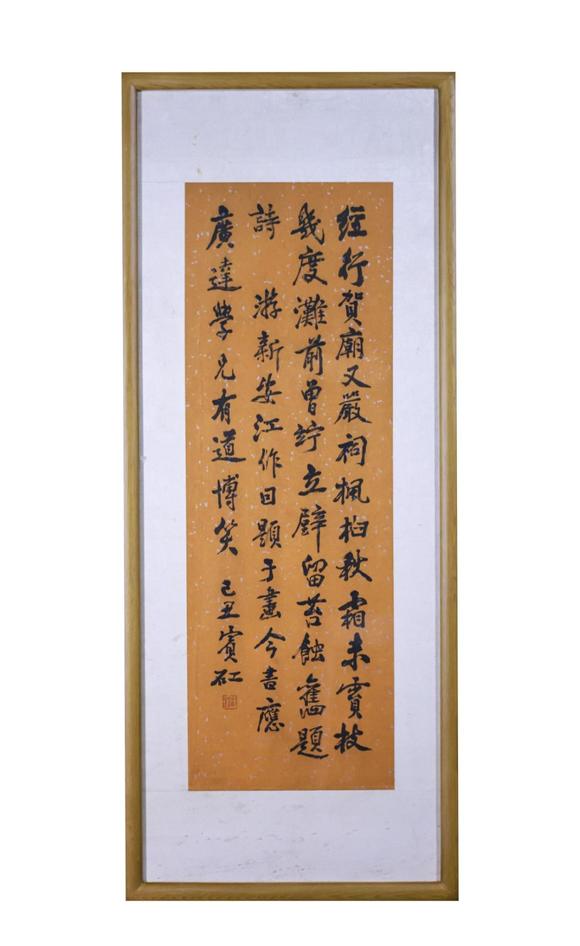 經行賀廟又嚴祠楓桕秋霜未實枝
幾度灘前曾竚立壁留苔蝕舊題
詩　游新安江作曰題于畫今書應
廣達學兄有道博笑　己丑賓虹